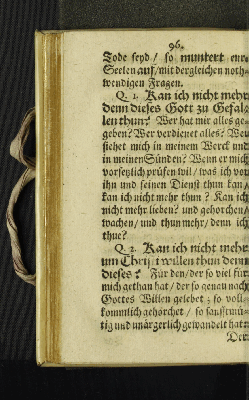 96.
Tode seyd / so muntert eure
Seelen auf/mit dergleichen noth-
wendigen Fragen.
Q. 1. Kan ich nicht mehr
denn dieses Gott zu Gefal-
len thun? Wer hat mir alles ge-
geben? Wer verdienet alles? Wer
siehet mich in meinem Werck und
in meinen Sünden? Wenn er mich
vorsetzlich prüfen wil/ was ich vor
ihn und seinen Dienst thun kan/
kan ich nicht mehr thun? Kan ich
nicht mehr lieben? und gehorchen/
wachen/ und thun mehr/ denn ich
thue?
Q. 2. Kan ich nicht mehr
um Christi willen thun denn
dieses? Für den/der so viel für
mich gethan hat/ der so genau nach
Gottes Willen gelebet; so voll-
kommlich gehorchet/ so sanftmü-
tig und unärgerlich gewandelt hat:
Der